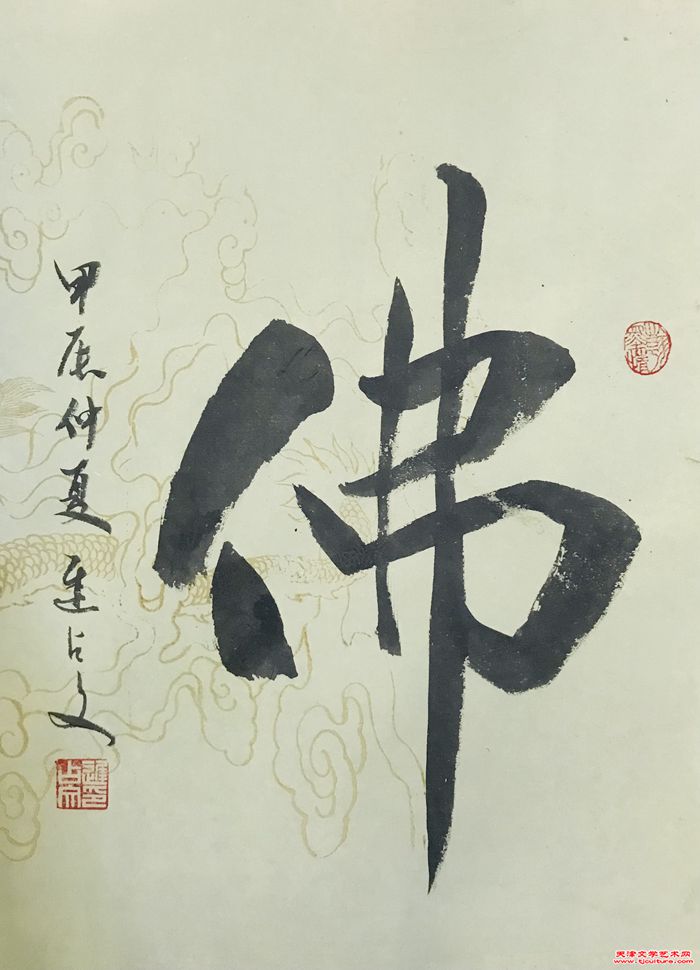 佛
甲辰仲夏 占文
天津文学艺术网
www.tjculture.com